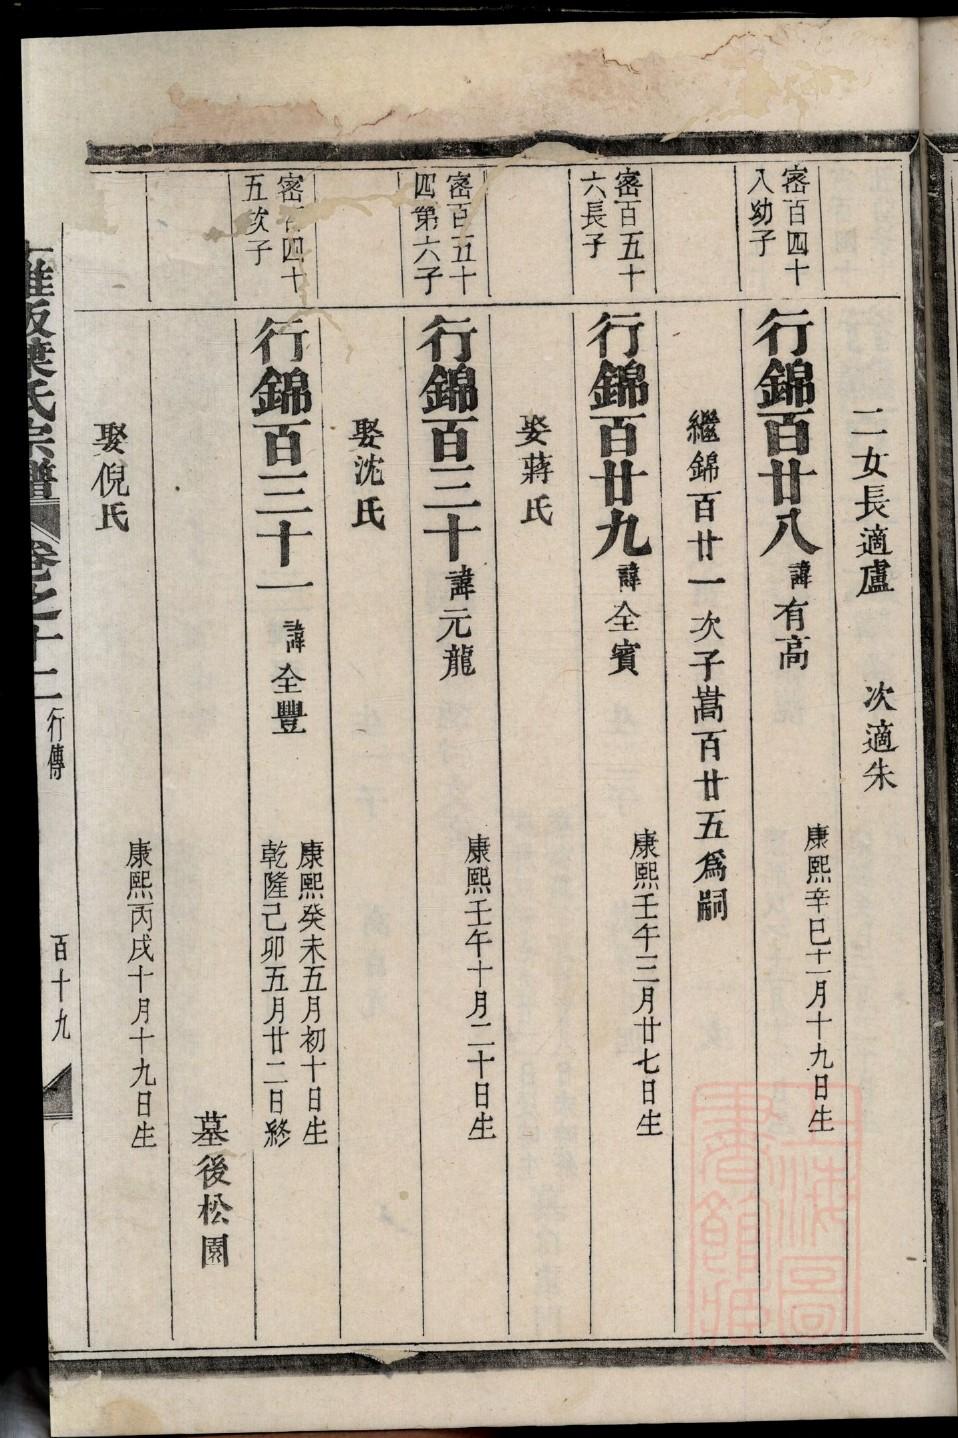 二女長適盧 次適朱
密百四十
八幼子
行錦百廿八 諱有高
康熙辛巳十一月十九日生
繼錦百廿一次子嵩百廿五爲嗣
密百五十
六長子
行錦百廿九 諱全賓
康熙壬午三月廿七日生
娶蔣氏
密百五十
四第六子
行錦百三十 諱元龍
康熙壬午十月二十日生
娶沈氏
密百四十
五次子
行錦百三十一 諱全豐
康熙癸未五月初十日生
乾隆己卯五月廿二日終
墓後松園
娶倪氏
康熙丙戌十月十九日生
雅坂葉氏宗譜 卷之十二 行傳 百十九
上海圖書館藏